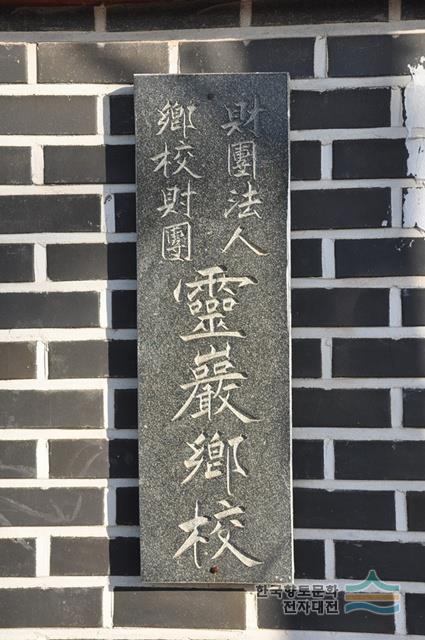 財團法人
鄕校財團
靈巖鄕校
한국향토문화
전자대전